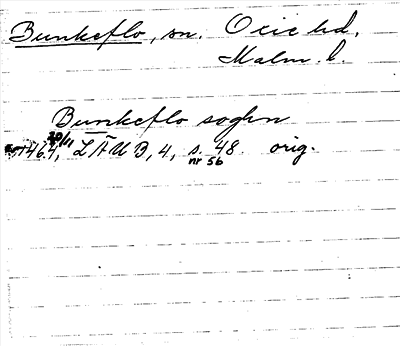 Bunkeflo, sn. Oxie hd,
Malm. l.
Bunkeflo soghn
20/11
1464, LÄUB, 4, s. 48 orig.
nr 56